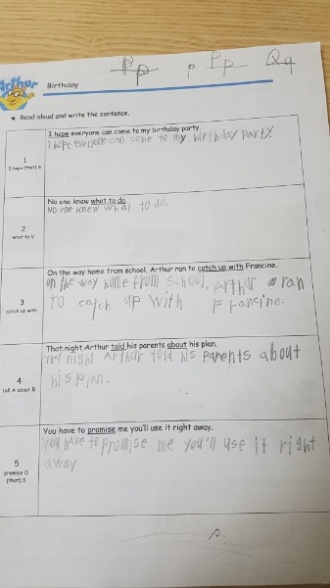 Pp p Pp Qq
Arthur
Birthday
★ Read aloud and write the sentence.
I hope everyone can come to my birthday party
I hope everyone can come to my birthday party.
1
I hope (that) S
No one knew what to do.
No one knew what to do.
2
what to V
On the way home from school, Arthur ran to catch up with Francine.
on the way home from school, Arthur ran
to catch up with Francine.
3
catch up with
That night Arthur told his parents about his plan.
That night Arthur told his parents about
his plan.
4
tell A about B
You have to promise me you'll use it right away.
You have to promise me you'll use it right
away
5
promise O
(that) S